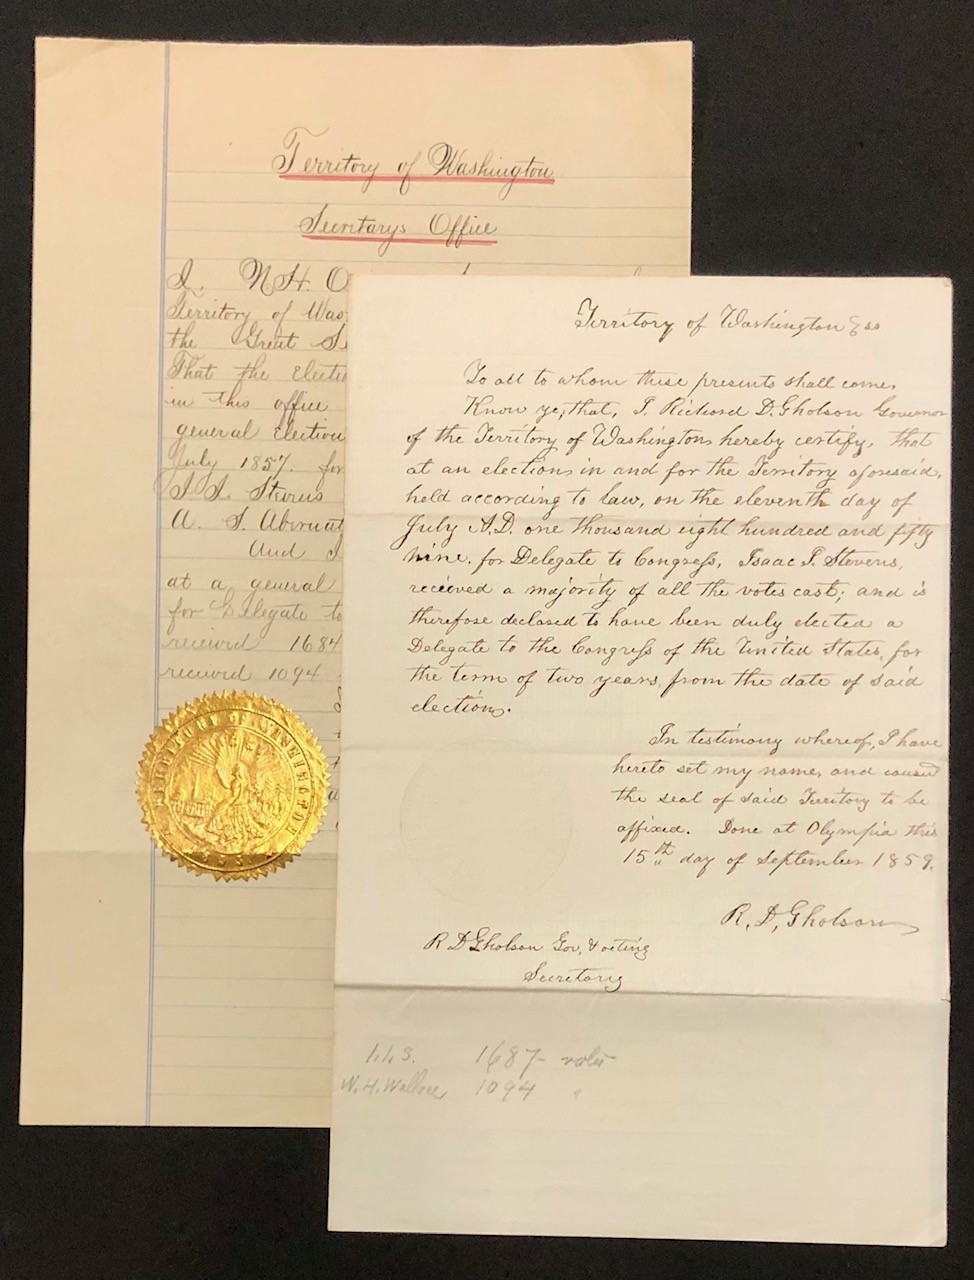 Territory of Washington
Secretarys Office
I. N.H. O
Territory of Was
the Great Se
That the Electi
in this office
general Election
July 1857. for
I. I. Stevens
A. S. Abernat
And I
at a general
for Delegate to
received 1684
received 1094
TERRITORY OF WASHINGTON
1853
Territory of Washington
To all to whom these presents shall come.
Know ye, that, I. Richard D. Gholson Governor
of the Territory of Washington, hereby certify, that
at an election, in and for the Territory aforesaid,
held according to law, on the eleventh day of
July A.D. one thousand eight hundred and fifty
nine, for Delegate to Congress, Isaac I. Stevens,
received a majority of all the votes cast; and is
therefore declared to have been duly elected a
Delegate to the Congress of the United States, for
the term of two years, from the date of said
election.
In testimony whereof, I have
hereto set my name, and caused
the seal of said Territory to be
affixed. Done at Olympia this
15th day of September 1859.
R. D. Gholson
R D Gholson Gov, & acting
Secretary
I. I. S. 1687 - votes
W. H. Wallace 1094 "